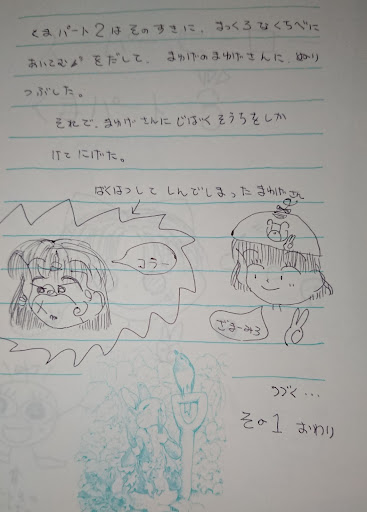 くまパート2はそのすきに、まっくろなくちべに
あいてむ をだして、まゆげのまゆげさんに、ぬり
つぶした。
それで、まゆげさんにじばくそうちをしか
けてにげた。
ばくはつしてしんでしまったまゆげさん
うう～
ざまーみろ
つづく…
その1 おわり